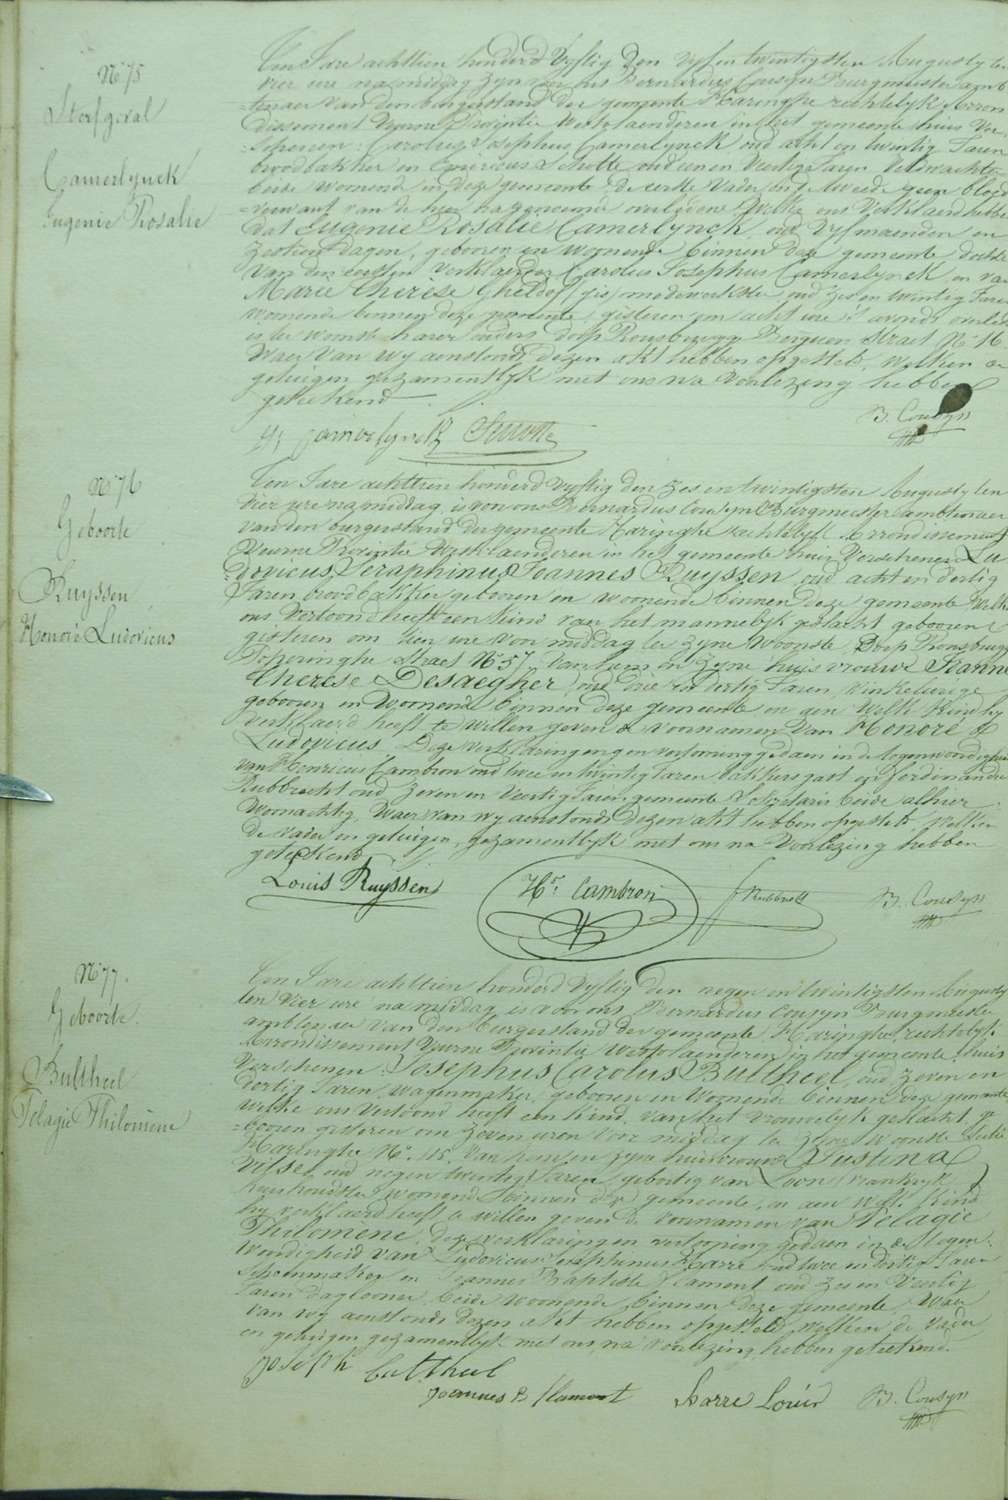 N° 75
Sterfgeval
Camerlynck
Eugenie Rosalie
Ten Jare achttien honderd vyftig den vyf en twintigsten Augusty ten
vier ure namiddag zyn voor ons Bernardus Cousyn Burgmeester amb
tenaer van den burgerstand der gemeente Haringhe rechtelyk Arron
dissement Veurne Provintie Westvlaenderen in het gemeente huis Ver
schenen: Carolus Josephus Camerlynck oud acht en twintig Jaren
broodbakker en Schotte oud en Veertig Jaren Veldwachter
beide wonende in deze gemeente de eerste Vader de tweede geen bloed
verwant van de hier nagenoemde overledene Welke ons Verklaerd hebben
dat Eugenie Rosalie Camerlynck oud Vyf maenden en
zestien dagen, geboren en woonende binnen deze gemeente dochter
van den eersten verklaerder Carolus Josephus Camerlynck en van
Marie Therese Gheleof oud zes en twintig Jaren
wonende binnen deze gemeente, gisteren om acht ure 's avonds overleden
is ter woonste harer ouders dorp Rousbrugge Straet N° 16
Waer van wy aenstonds dezen akt hebben opgesteld, Welken de
getuigen gezamentlyk met ons na Voorlezing hebben
geteekend
Camerlynck Schotte
B. Cousyn
N° 76
Geboorte
Ruyssen
Honoré Ludovicus
Ten Jare achttien honderd vyftig den zes en twintigsten Augusty ten
vier ure namiddag is voor ons Bernardus Cousyn Burgmeester ambtenaer
van den burgerstand der gemeente Haringhe rechtelyk Arrondissement
Veurne Provintie Westvlaenderen in het gemeente huis Verschenen Lu
dovicus Seraphinus Joannes Ruyssen, oud acht en dertig
Jaren broodbakker geboren en woonende binnen deze gemeente Welke
ons Vertoond heeft een kind van het mannelyk geslacht geboren
gisteren om tien ure voor middag te zyne Woonste Dorp Rousbrugge
Poperinghe Straet N° 57, Van hem en zyne huisvrouwe Jeanne
Therese Desaegher, oud drie en dertig Jaren, Winkelierige
geboren en Woonende binnen deze gemeente en aen Welk kind hy
verklaerd heeft te willen geven de voornamen van Honoré
Ludovicus Deze verklaringen en vertooning gedaen in de tegenwoordigheid
van Henricus Cambron oud twee en twintig Jaren bakkersgast en Ferdinandus
Rubbrecht oud zeven en Veertig Jaren gemeente Sekretaris beide alhier
Woonachtig, Waer van wy aenstonds dezen akt hebben opgesteld Welken
de vader en getuigen, gezamentlyk met ons na Voorlezing hebben
geteekend
Louis Ruyssen
Hri Cambron
F Rubbrecht
B. Cousyn
N° 77.
Geboorte.
Bultheel
Pelagie Philomène
Ten Jare achttien honderd Vyftig den negen en twintigsten Augusty
ten Vier ure namiddag, is voor ons Bernardus Cousyn Burgmeester
ambtenaer van den burgerstand der gemeente Haringhe, rechtelyk
Arrondissement Veurne Provintie Westvlaenderen, in het gemeente huis
Verschenen Josephus Carolus Bultheel, oud zeven en
dertig Jaren, wagenmaker, geboren en Wonende binnen deze gemeente
welke ons Vertoond heeft een Kind, van het vrouwelyk geslacht ge
boren gisteren om zeven uren Voor middag te zyne Woonste
Haringhe N° 115, Van hem en zyne huisvrouwe Justina
oud negen en twintig Jaren geboortig van Loon Vrankryk
huishoudster wonende binnen deze gemeente, en aen Welk Kind
hy verklaerd heeft te willen geven de voornamen van Pelagie
Philomène, deze verklaringen en vertooning gedaen in de tegen
woordigheid van Ludovicus Josephinus Harre oud twee en dertig Jaren
Schoenmaker en Joannes Baptiste Flament oud zes en Veertig
Jaren daglooner, beide woonende binnen deze gemeente, Waer
van wy aenstonds dezen akt hebben opgesteld, Welken de Vader
en getuigen gezamentlyk met ons, na Voorlezing hebben geteekend.
Joseph Bultheel
Joannes B Flament
Harre Louis
B. Cousyn